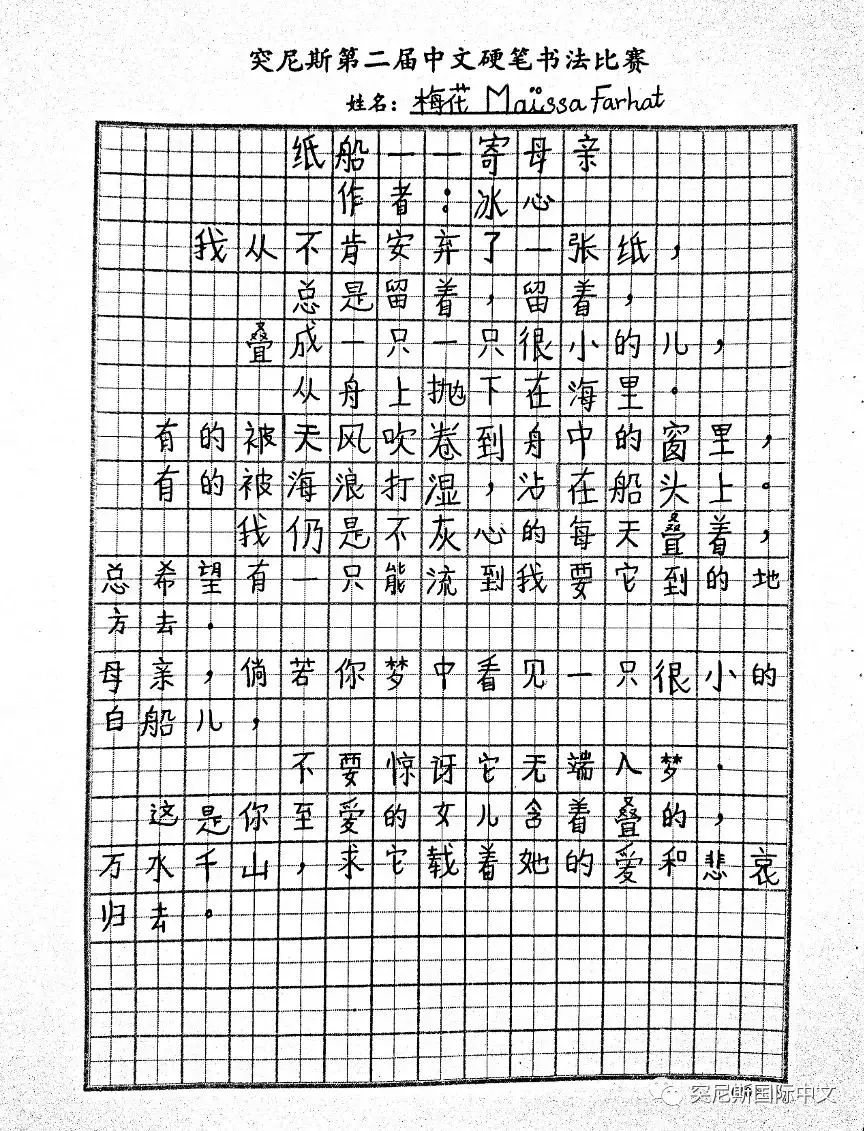 突尼斯第二届中文硬笔书法比赛
姓名：梅花 Maïssa Farhat
纸船——寄母亲
作者：冰心
我从不肯安弃了一张纸，
总是留着，留着，
叠成一只一只很小的儿，
从舟上抛下在海里。
有的被天风吹卷到舟中的窗里，
有的被海浪打湿，沾在船头上。
我仍是不灰心的每天叠着，
总希望有一只能流到我要它到的地
方去。
母亲，倘若你梦中看见一只很小的
白船儿，
不要惊讶它无端入梦。
这是你至爱的女儿含着叠的，
万水千山，求它载着她的爱和悲哀
归去。
突尼斯国际中文